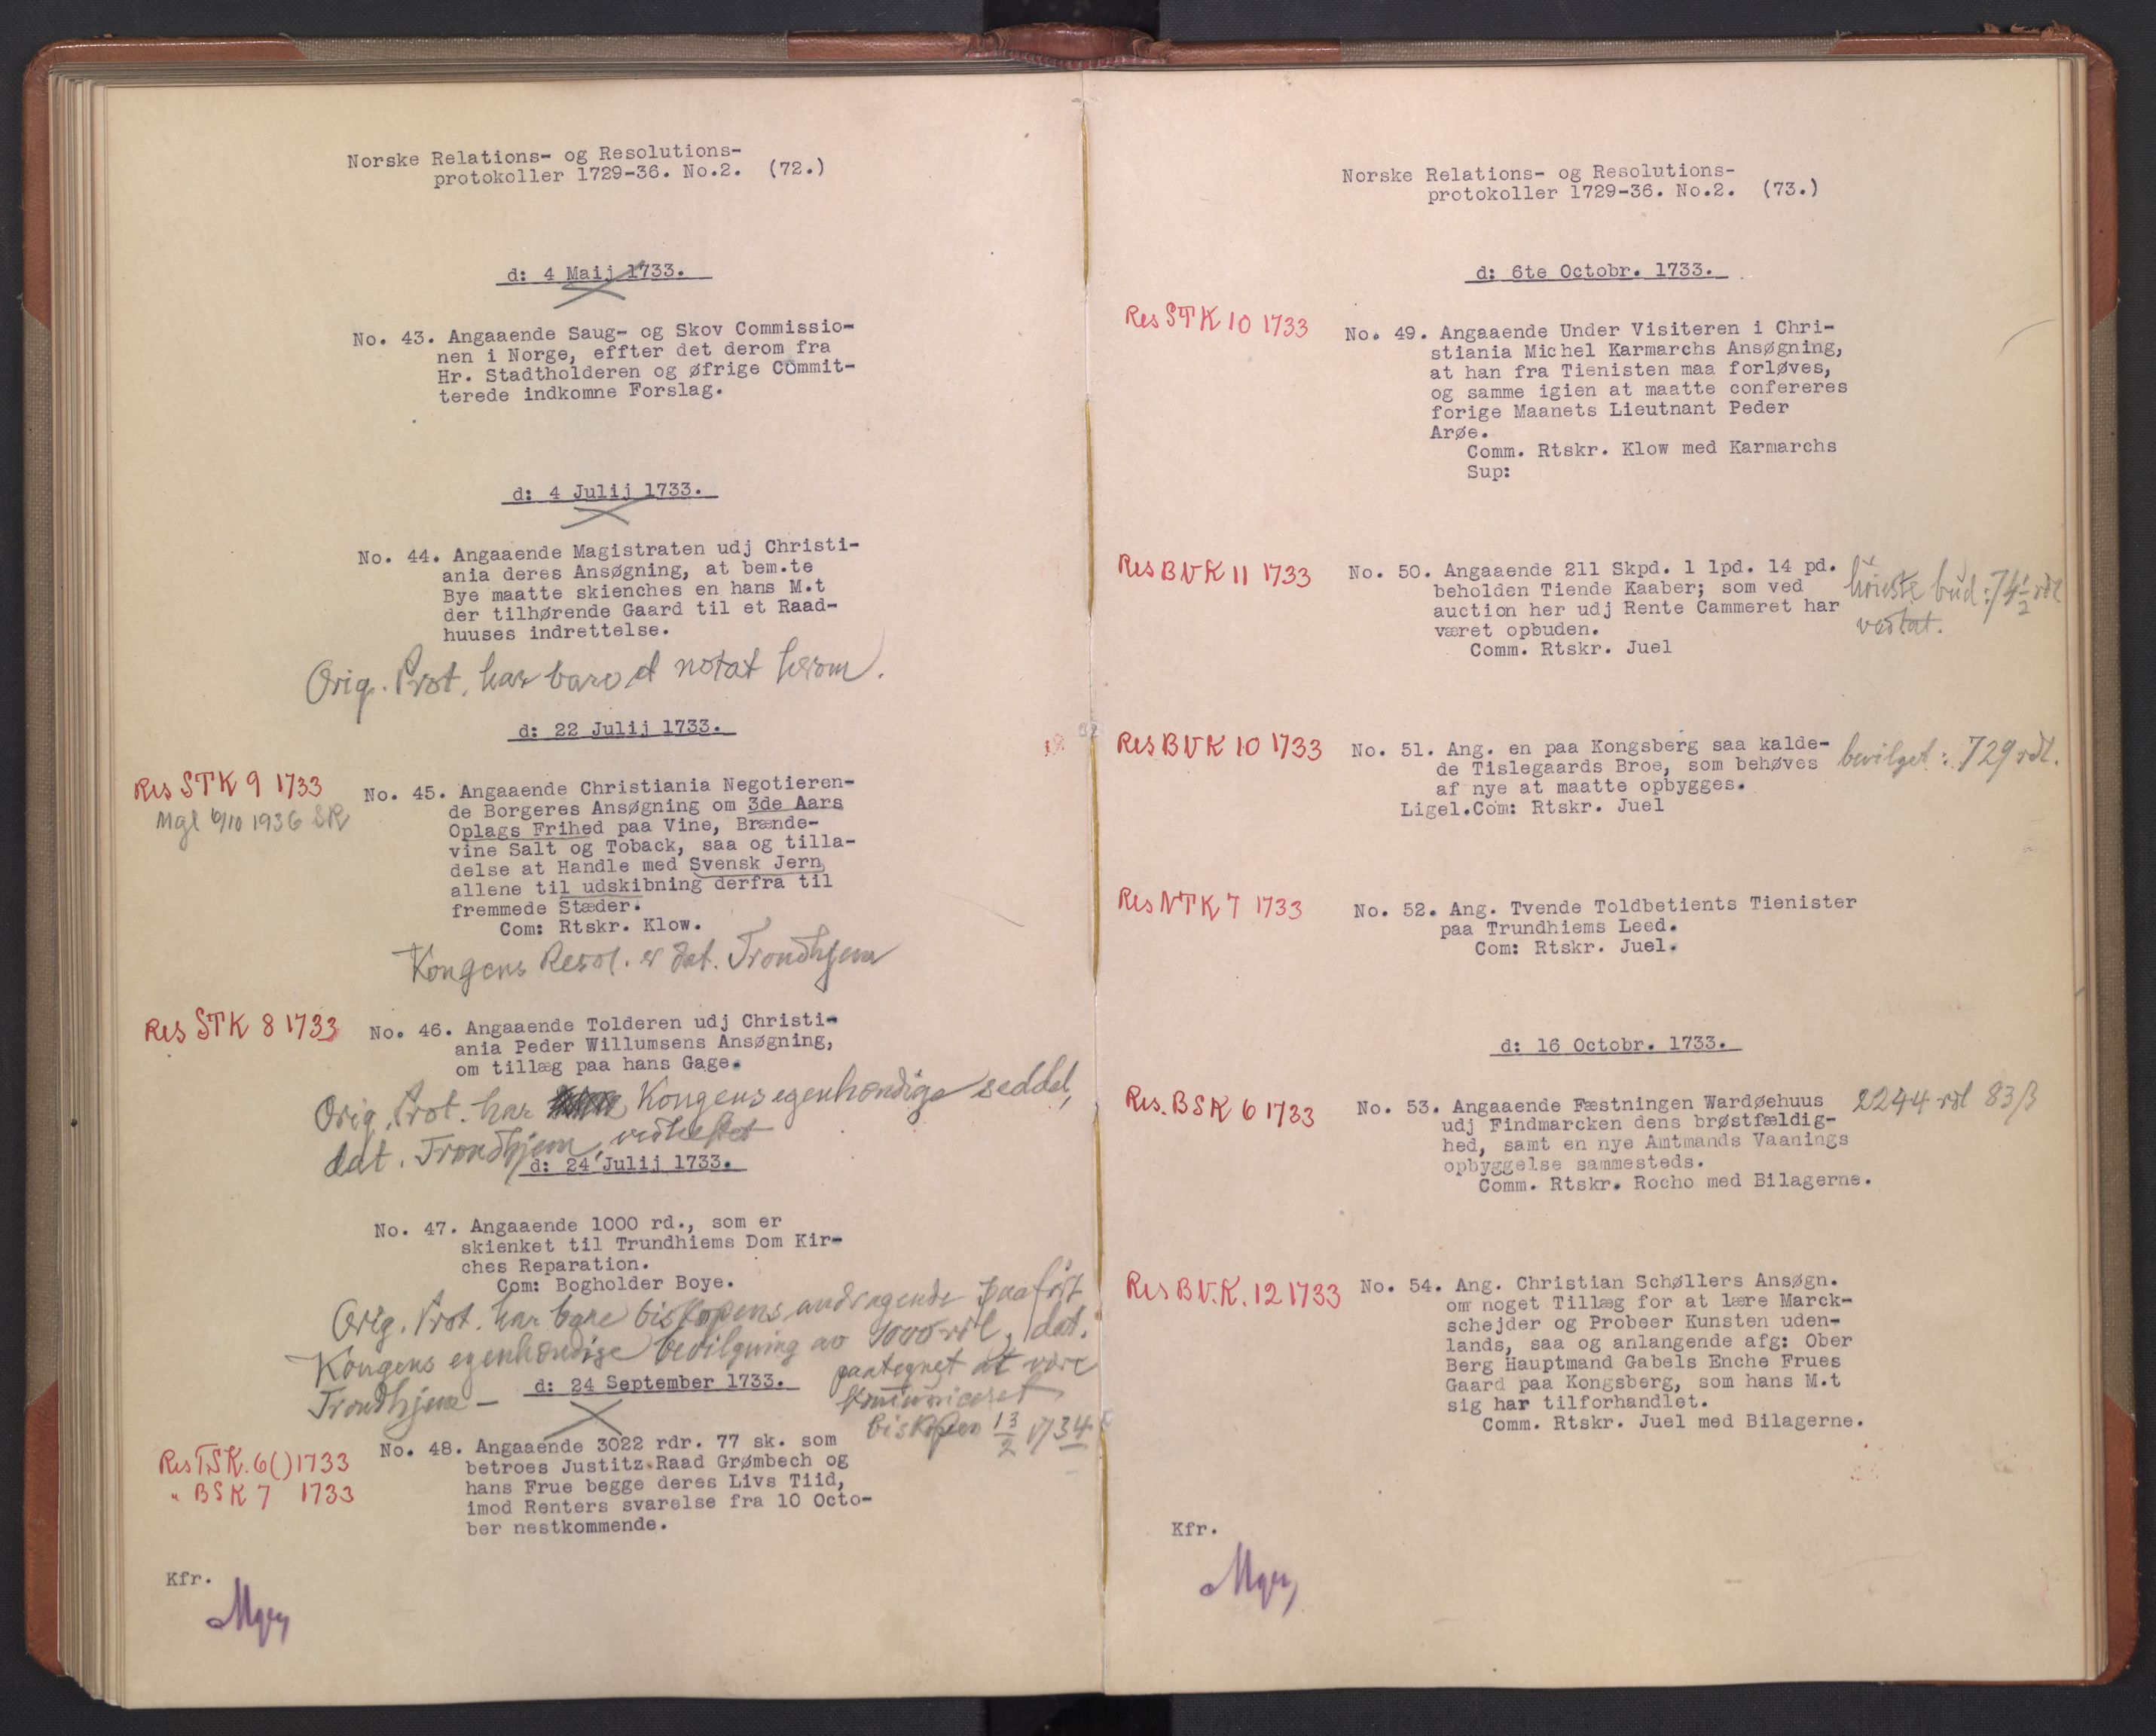 Norske Relations- og Resolutions-
protokoller 1729-36. No.2. (72.)
d: 4 Maij 1733.
No. 43. Angaaende Saug- og Skov Commissio-
nen i Norge, effter det derom fra
Hr. Stadtholderen og øfrige Committ-
terede indkomne Forslag.
d: 4 Julij 1733.
No. 44. Angaaende Magistraten udj Christi-
ania deres Ansøgning, at bem.te
Bye maatte skienches en hans M.t
der tilhørende Gaard til et Raad-
huuses indrettelse.
Orig. Prot. har bare et notat herom.
d: 22 Julij 1733.
Res STK 9 1733
Mgl 6/10 1936 SR
No. 45. Angaaende Christiania Negotieren-
de Borgeres Ansøgning om 3de Aars
Oplags Frihed paa Vine, Brænde-
vine Salt og Toback, saa og tilla-
delse at Handle med Svensk Jern
allene til udskibning derfra til
fremmede Stæder.
Com: Rtskr. Klow.
Kongens Resol. er dat. Trondhjem
Res STK 8 1733
No. 46. Angaaende Tolderen udj Christi-
ania Peder Willumsens Ansøgning,
om tillæg paa hans Gage.
Orig. Prot. har Kongens egenhændige seddel,
dat. Trondhjem, vedheftet
d: 24 Julij 1733.
No. 47. Angaaende 1000 rd., som er
skienket til Trundhiems Dom Kir-
ches Reparation.
Com: Bogholder Boye.
Orig. Prot. har bare biskopens andragende paaført
Kongens egenhændige bevilgning av 1000 rdl, dat.
Trondhjem -
paategnet at være
kommuniceret
biskopen 13/2 1734
d: 24 September 1733.
Res TSK. 6() 1733
" BSK 7 1733
No. 48. Angaaende 3022 rdr. 77 sk. som
betroes Justitz.Raad Grømbech og
hans Frue begge deres Livs Tiid,
imod Renters svarelse fra 10 Octo-
ber nestkommende.
Kfr.
Norske Relations- og Resolutions-
protokoller 1729-36. No.2. (73.)
d: 6te Octobr. 1733.
Res STK 10 1733
No. 49. Angaaende Under Visiteren i Chri-
stiania Michel Karmarchs Ansøgning,
at han fra Tienisten maa forløves,
og samme igien at maatte confereres
forige Maanets Lieutnant Peder
Arøe.
Comm. Rtskr. Klow med Karmarchs
Sup:
Res BVK 11 1733
No. 50. Angaaende 211 Skpd. 1 lpd. 14 pd.
beholden Tiende Kaaber; som ved
auction her udj Rente Cammeret har
været opbuden.
Comm. Rtskr. Juel
höieste bud: 74 1/2 rdl
vedtat.
Res BVK 10 1733
No. 51. Ang. en paa Kongsberg saa kalde-
de Tislegaards Broe, som behøves
af nye at maatte opbygges.
Ligel.Com: Rtskr. Juel
bevilget: 729 rdl.
Res NTK 7 1733
No. 52. Ang. Tvende Toldbetients Tienister
paa Trundhiems Leed.
Com: Rtskr. Juel.
d: 16 Octobr. 1733.
Res. BSK 6 1733
No. 53. Angaaende Fæstningen Wardøehuus
udj Findmarcken dens brøstfældig-
hed, samt en nye Amtmands Vaanings
opbyggelse sammesteds.
Comm. Rtskr. Rocho med Bilagerne.
2244 rdl 83 ß
Res BV.K. 12 1733
No. 54. Ang. Christian Schøllers Ansøgn.
om noget Tillæg for at lære Marck-
schejder og Probeer Kunsten uden-
lands, saa og anlangende afg: Ober
Berg Hauptmand Gabels Enche Frues
Gaard paa Kongsberg, som hans M.t
sig har tilforhandlet.
Comm. Rtskr. Juel med Bilagerne.
Kfr.